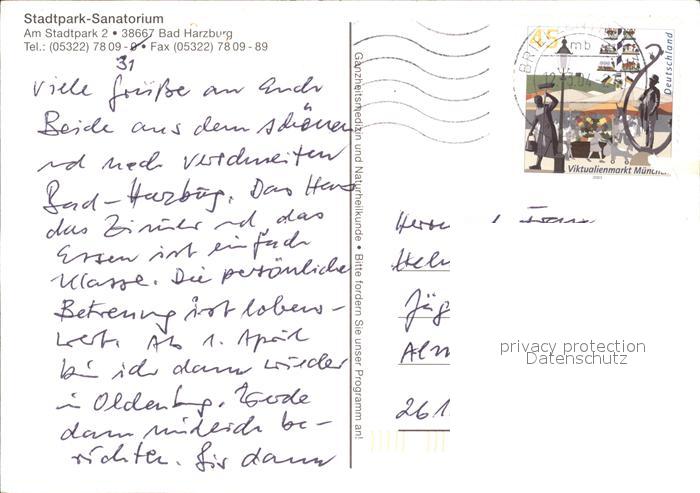 Stadtpark-Sanatorium
Am Stadtpark 2 • 38667 Bad Harzburg
Tel.: (05322) 78 09 - 0 • Fax (05322) 78 09 - 89
31
Viele Grüße an Euch
Beide aus dem schönen
und noch verschneiten
Bad-Harzburg. Das Haus
das Zimmer und das
Essen ist einfach
Klasse. Die persönliche
Betreuung ist lobens-
wert. Ab 1. April
bin ich dann wieder
in Oldenburg. Werde
dann mündlich be-
richten. Bis dann
Ganzheitsmedizin und Naturheilkunde • Bitte fordern Sie unser Programm an!
45
Deutschland
mb
Viktualienmarkt Münch
Herrn
Helm
Jäg
Alm
261
privacy protection
Datenschutz